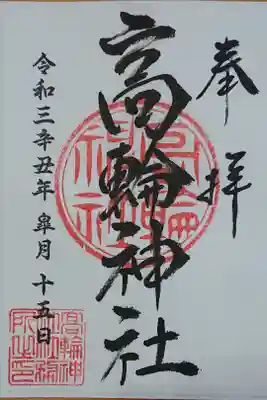 奉拝
高輪神社
令和三辛丑年 皐月 十五日
高輪神社
高輪神社務所之印